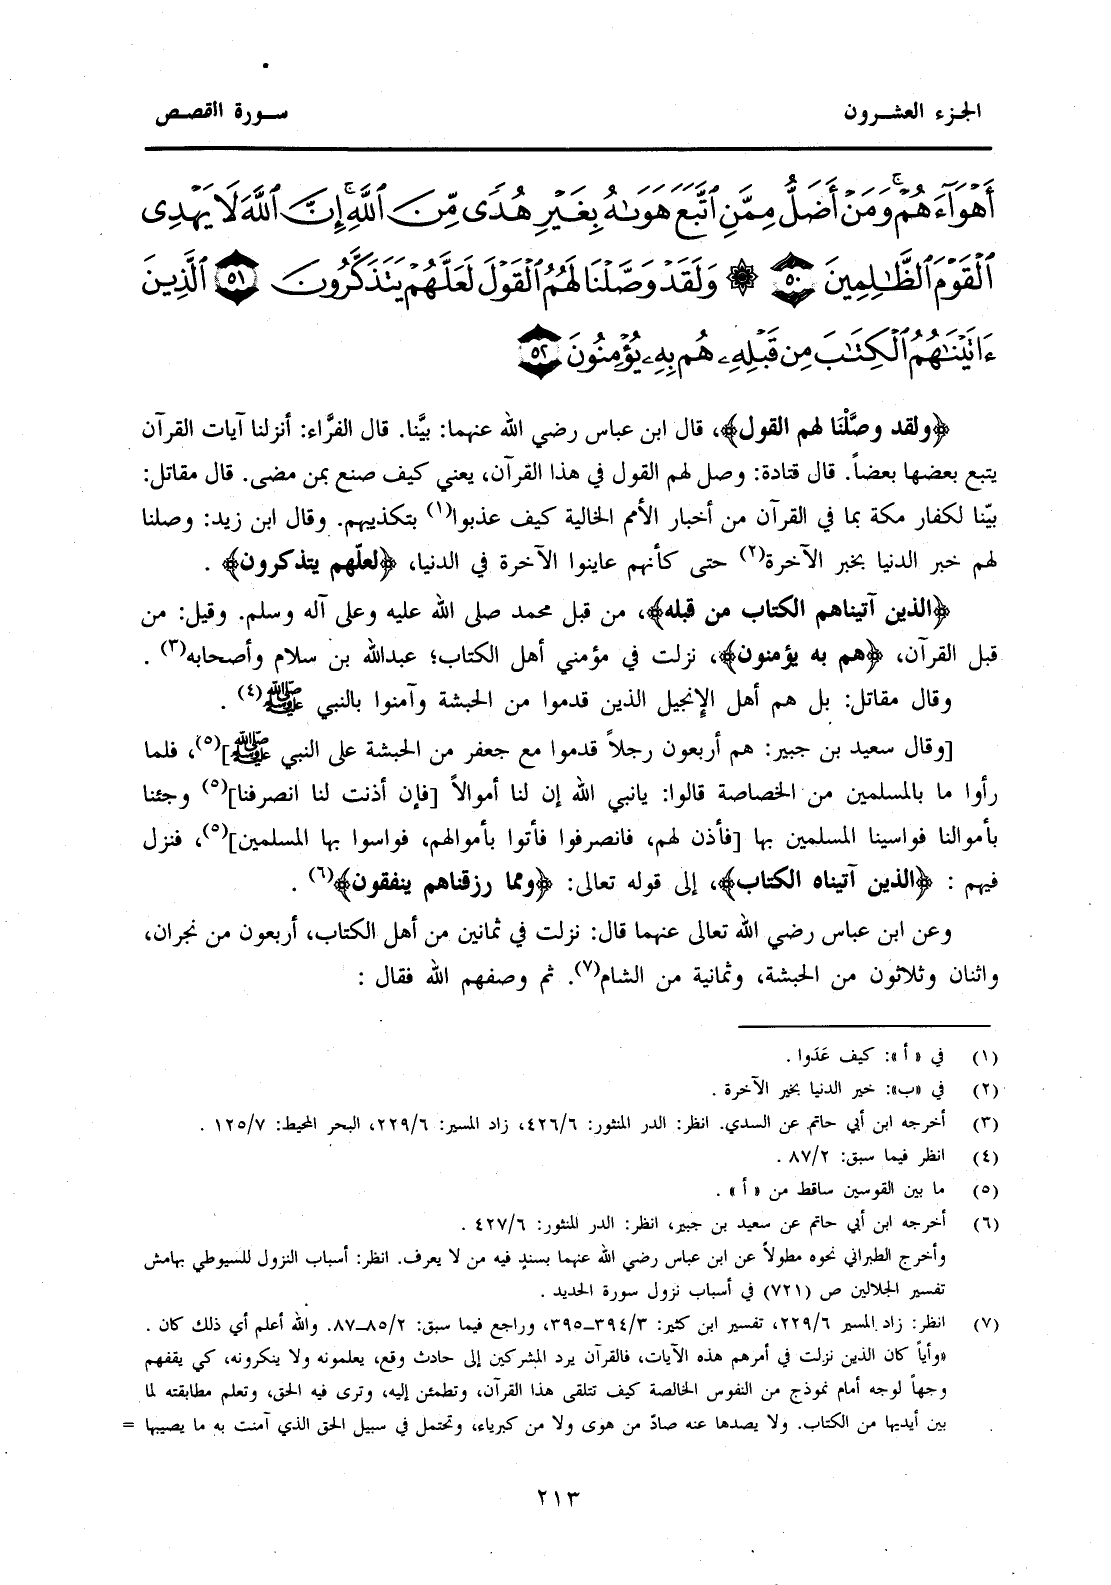 الجزء العشرون
سورة القصص
أَهْوَآءَهُمْ ۚ وَمَنْ أَضَلُّ مِمَّنِ ٱتَّبَعَ هَوَىٰهُ بِغَيْرِ هُدًى مِّنَ ٱللَّهِ ۚ إِنَّ ٱللَّهَ لَا يَهْدِى
ٱلْقَوْمَ ٱلظَّٰلِمِينَ ٥٠ ۞ وَلَقَدْ وَصَّلْنَا لَهُمُ ٱلْقَوْلَ لَعَلَّهُمْ يَتَذَكَّرُونَ ٥١ ٱلَّذِينَ
ءَاتَيْنَٰهُمُ ٱلْكِتَٰبَ مِن قَبْلِهِۦ هُم بِهِۦ يُؤْمِنُونَ ٥٢
﴿ولقد وصَّلْنَا لهم القول﴾، قال ابن عباس رضي الله عنهما: بيَّنا. قال الفرَّاء: أنزلنا آيات القرآن
يتبع بعضها بعضاً. قال قتادة: وصل لهم القول في هذا القرآن، يعني كيف صنع بمن مضى. قال مقاتل:
بيّنا لكفار مكة بما في القرآن من أخبار الأمم الخالية كيف عذبوا(١) بتكذيبهم. وقال ابن زيد: وصلنا
لهم خبر الدنيا بخبر الآخرة(٢) حتى كأنهم عاينوا الآخرة في الدنيا، ﴿لعلّهم يتذكرون﴾ .
﴿الذين آتيناهم الكتاب من قبله﴾، من قبل محمد صلى الله عليه وعلى آله وسلم. وقيل: من
قبل القرآن، ﴿هم به يؤمنون﴾، نزلت في مؤمني أهل الكتاب؛ عبدالله بن سلام وأصحابه(٣) .
وقال مقاتل: بل هم أهل الإنجيل الذين قدموا من الحبشة وآمنوا بالنبي ﷺ(٤) .
[وقال سعيد بن جبير: هم أربعون رجلاً قدموا مع جعفر من الحبشة على النبي ﷺ](٥)، فلما
رأوا ما بالمسلمين من الخصاصة قالوا: يانبي الله إن لنا أموالاً [فإن أذنت لنا انصرفنا](٥) وجئنا
بأموالنا فواسينا المسلمين بها [فأذن لهم، فانصرفوا فأتوا بأموالهم، فواسوا بها المسلمين](٥)، فنزل
فيهم : ﴿الذين آتيناه الكتاب﴾، إلى قوله تعالى: ﴿ومما رزقناهم ينفقون﴾(٦) .
وعن ابن عباس رضي الله تعالى عنهما قال: نزلت في ثمانين من أهل الكتاب، أربعون من نجران،
واثنان وثلاثون من الحبشة، وثمانية من الشام(٧). ثم وصفهم الله فقال :
(١) في « أ »: كيف عَدَوا .
(٢) في «ب»: خير الدنيا بخير الآخرة .
(٣) أخرجه ابن أبي حاتم عن السدي. انظر: الدر المنثور: ٤٢٦/٦، زاد المسير: ٢٢٩/٦، البحر المحيط: ١٢٥/٧ .
(٤) انظر فيما سبق: ٨٧/٢ .
(٥) ما بين القوسين ساقط من « أ » .
(٦) أخرجه ابن أبي حاتم عن سعيد بن جبير، انظر: الدر المنثور: ٤٢٧/٦ .
وأخرج الطبراني نحوه مطولاً عن ابن عباس رضي الله عنهما بسندٍ فيه من لا يعرف. انظر: أسباب النزول للسيوطي بهامش
تفسير الجلالين ص (٧٢١) في أسباب نزول سورة الحديد .
(٧) انظر: زاد المسير ٢٢٩/٦، تفسير ابن كثير: ٣٩٤/٣ـ٣٩٥، وراجع فيما سبق: ٨٥/٢ـ٨٧. والله أعلم أي ذلك كان .
«وأياً كان الذين نزلت في أمرهم هذه الآيات، فالقرآن يرد المشركين إلى حادث وقع، يعلمونه ولا ينكرونه، كي يقفهم
وجهاً لوجه أمام نموذج من النفوس الخالصة كيف تتلقى هذا القرآن، وتطمئن إليه، وترى فيه الحق، وتعلم مطابقته لما
بين أيديها من الكتاب. ولا يصدها عنه صادّ من هوى ولا من كبرياء، وتحتمل في سبيل الحق الذي آمنت به ما يصيبها =
٢١٣